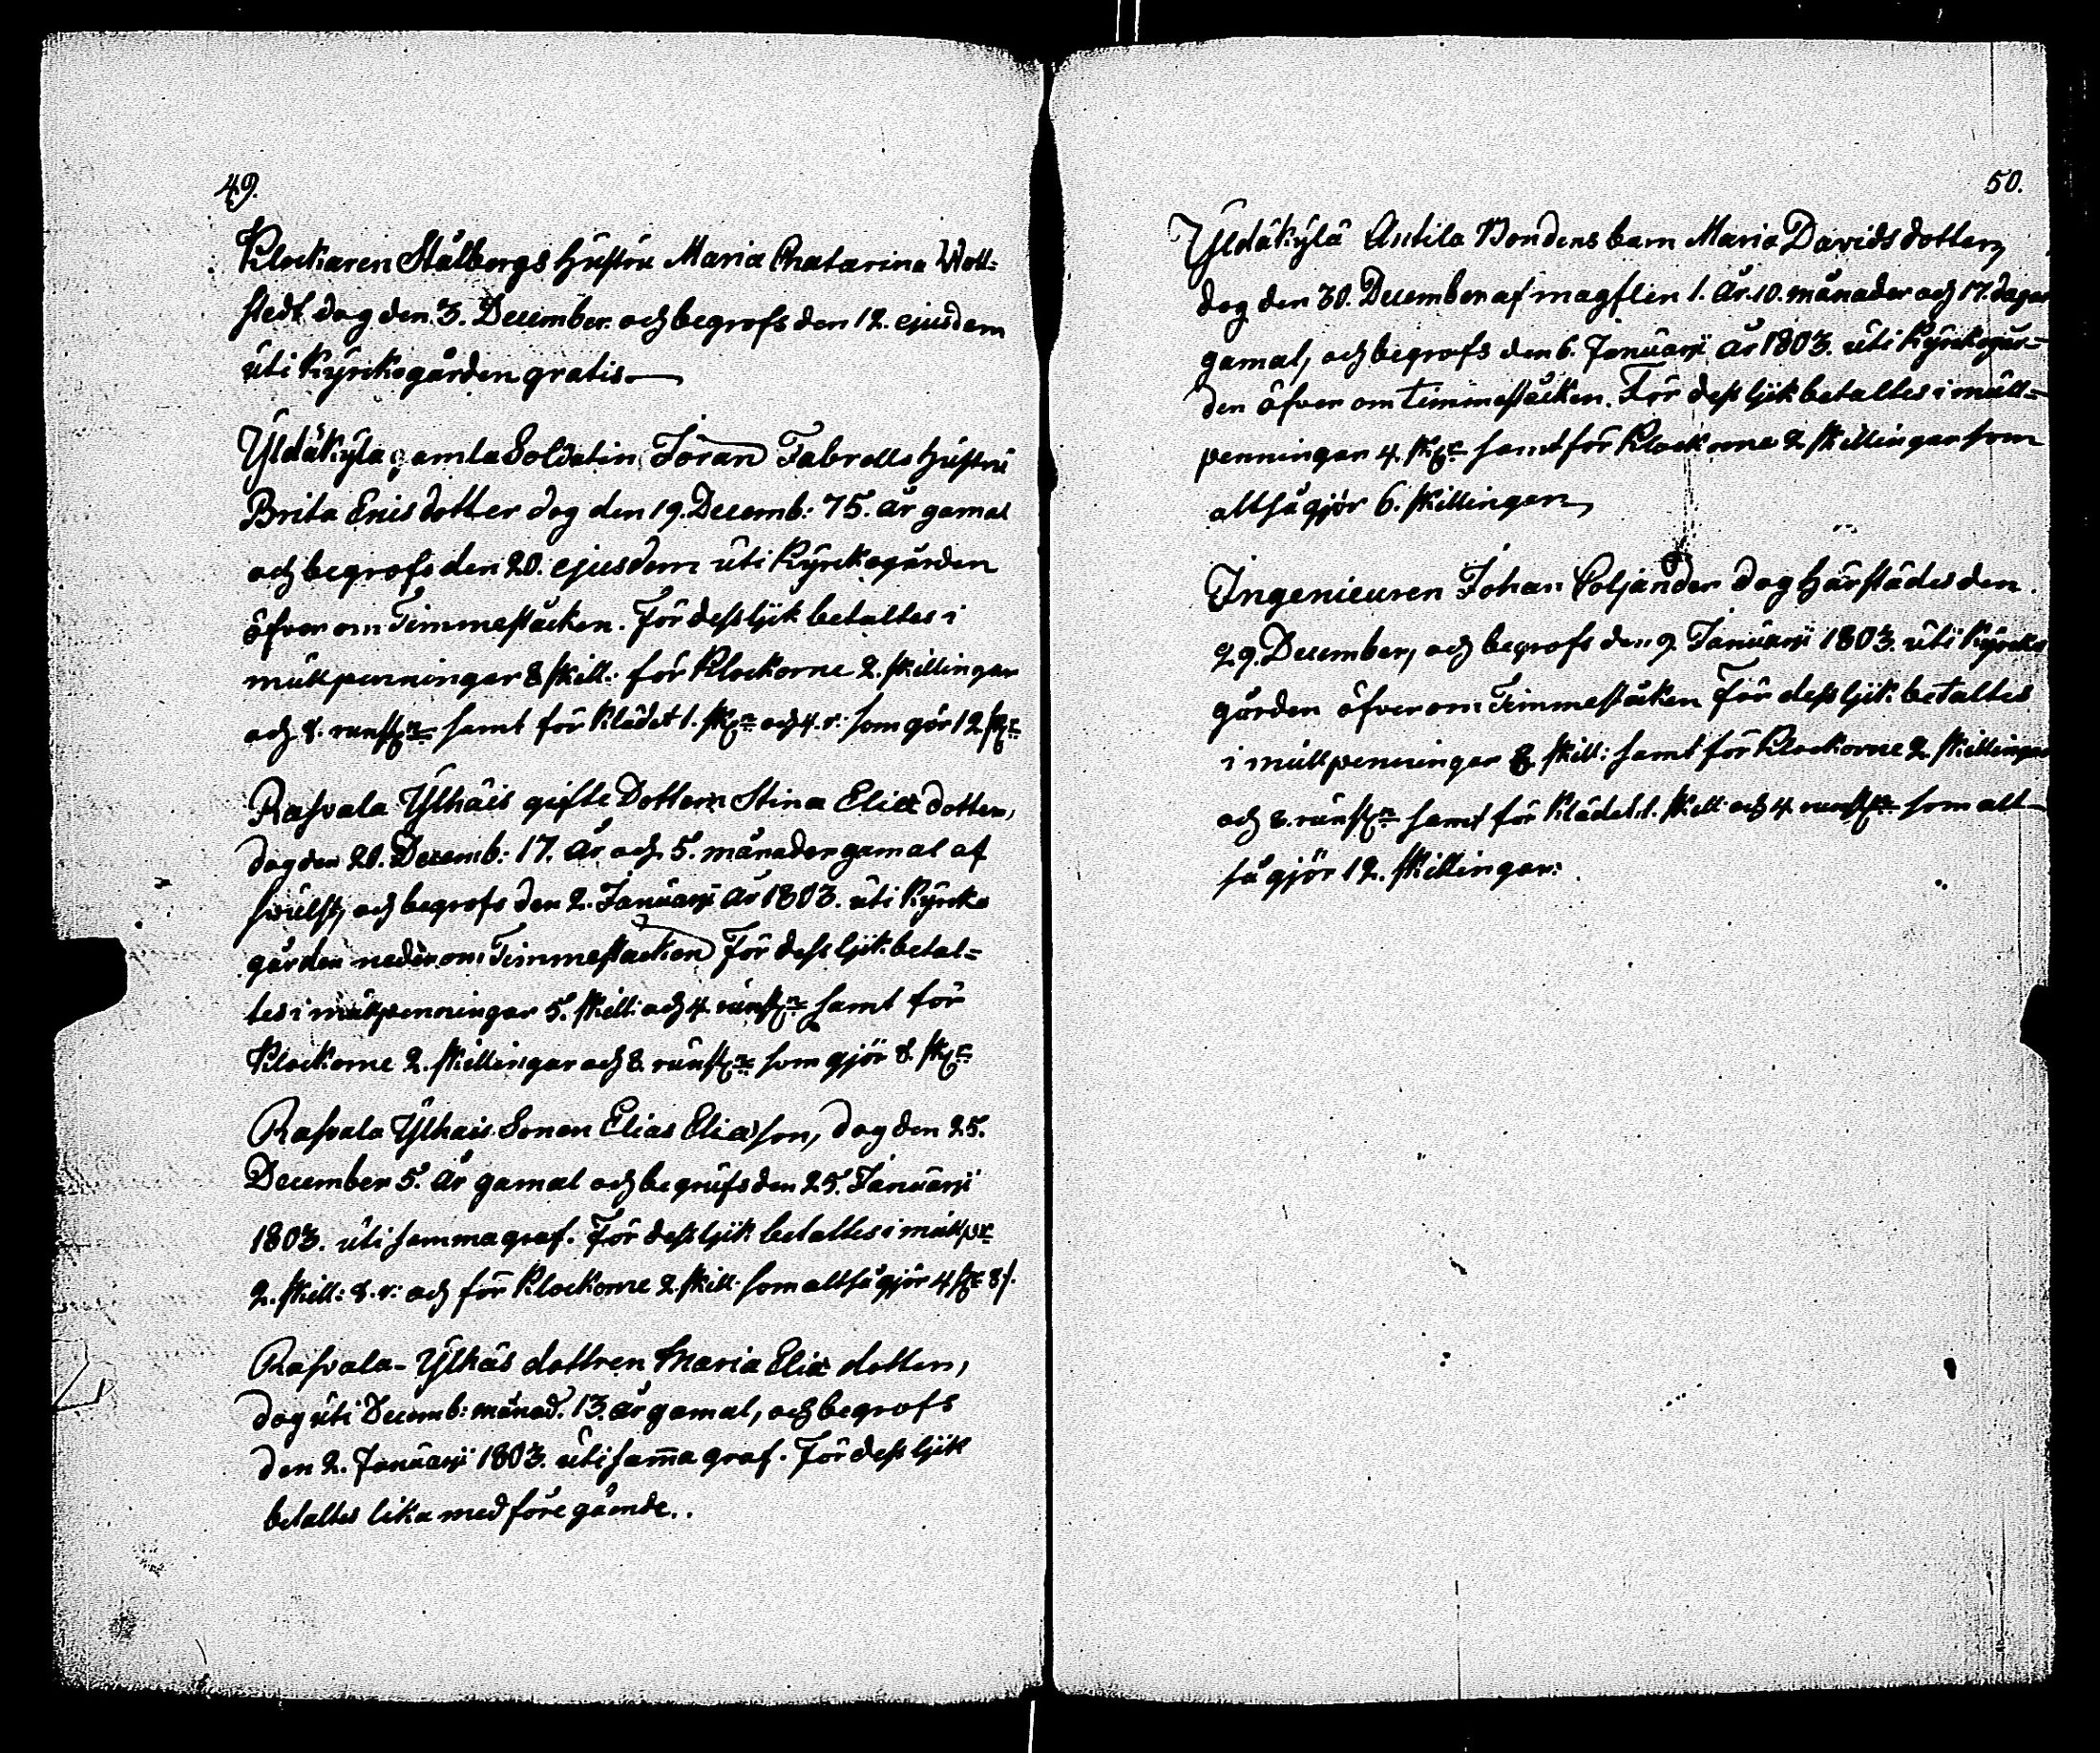 49.
Klockaren Stålbergs hustru Maria Chatarina Woll-
stedt dog den 3. December och begrofs den 12. ejusdem
uti Kyrkogården gratis.
Yldäkylä gamla Soldatin Jöran Fabrells hustru
Brita Enisdotter dog den 19. Decemb: 75. år gamal
och begrofs den 20. ejusdem uti Kyrckogården
öfver om Timmestäcken. För dess lijk betaltes i
mullpenningar 8 skill: för Klockorne 2. skillingar
och 8. runst:r samt för Klädet 1. sk:r och 4. r: som gör 12. sk:r
Rasvala Ylhäis gifte Dottern Stina Eliæ dotter,
dog den 20. Decemb: 17. år och 5. månader gamal af
svulst, och begrofs den 2. Januarji år 1803. uti Kyrcko
gården neder om Timmestacken För dess lijk betal-
tes i mullpenningar 5. skill: och 4 runst:r samt för
Klockorne 2. skillingar och 8. runst:r som gjör 8. sk:r
Rasvala Ylhais Sonen Elias Eliasson, dog den 25.
December 5. år gamal och begrofs den 25. Januarji
1803. uti samma graf. För dess lijk betaltes i mullp:r
2. skill: 8. r: och för Klockorne 2. skill: som altså gjör 4 sk:r 8 r.
Rasvala-Ylhäs dottren Maria Eliæ dotter,
dog uti Decemb: månad. 13. år gamal, och begrofs
den 2. Januarji 1803. uti sam̄a graf. För dess lijk
betaltes lika med föregående.
50.
Yldäkylä Antila Bondens barn Maria Davidsdotter,
dog den 30. December af magflen 1. år. 10. månader och 17. dagar
gamal, och begrofs den 6. Januarji år 1803. uti Kyrckogår-
den öfver om timmestäcken. För dess lijk betaltes i mull-
penningar 4. sk:r samt för Klockorne 2 skillingar som
altså gjör 6. skillingar,
Ingenieuren Johan Coljander dog härstädes den
29. December, och begrofs den 9. Januarji 1803. uti Kyrcko
gården öfver om Timmestäcken För dess lijk betaltes
i mullpenningar 8. skill: samt för Klockorne 2. skillingar
och 8. runst:r samt för Klädet 1. skill: och 4. runst:r som alt-
så gjör 12. skillingar.